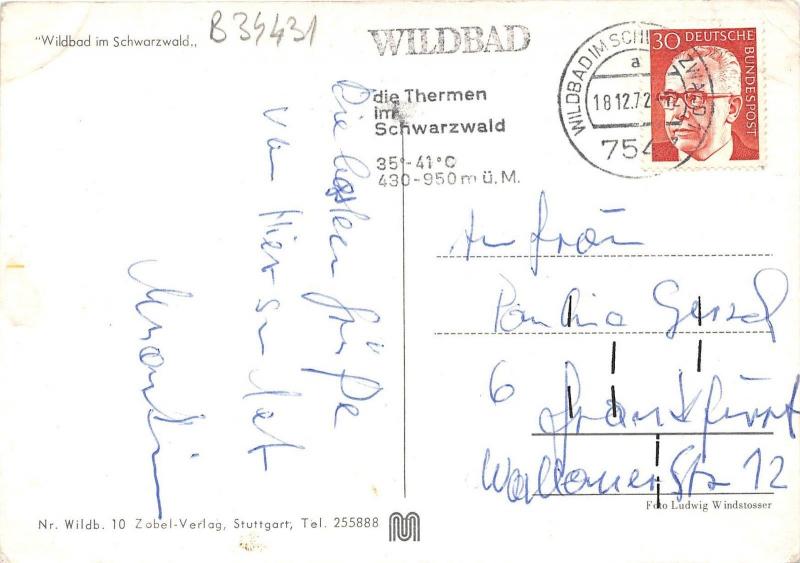 "Wildbad im Schwarzwald„
B34431
WILDBAD
die Thermen
im
Schwarzwald
35°-41°C
430-950 m ü. M.
WILDBAD IM SCHWARZWALD
a
18.12.72-12
754
30 DEUTSCHE
BUNDESPOST
Die besten Grüße
von Hier sendet
An Frau
Paulina
6 Frankfurt
Wallauer Str 12
Foto Ludwig Windstosser
Nr. Wildb. 10 Zobel-Verlag, Stuttgart, Tel. 255888